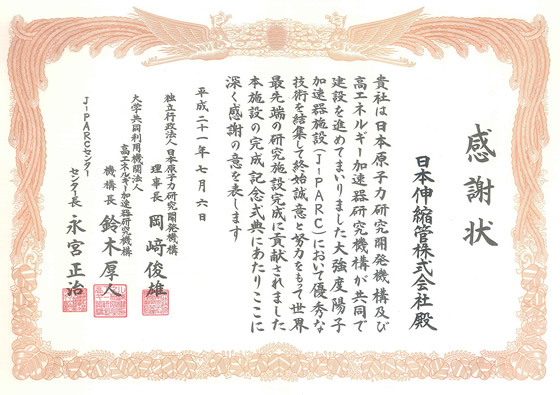 感謝状
日本伸縮管株式会社殿
貴社は日本原子力研究開発機構及び
高エネルギー加速器研究機構が共同で
建設を進めてまいりました大強度陽子
加速器施設(J-PARC)において優秀な
技術を結集して終始誠意と努力をもって世界
最先端の研究施設完成に貢献されました
本施設の完成記念式典にあたりここに
深く感謝の意を表します
平成二十一年七月六日
独立行政法人日本原子力研究開発機構
理事長 岡﨑俊雄
大学共同利用機関法人
高エネルギー加速器研究機構
機構長 鈴木厚人
J-PARCセンター
センター長 永宮正治